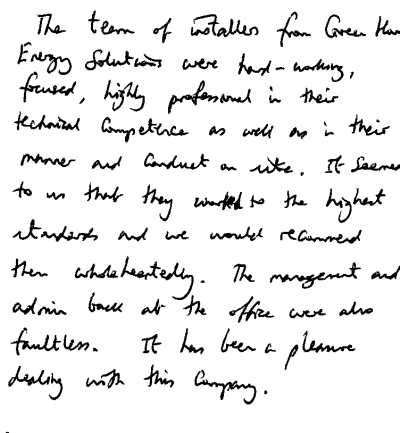 The team of installers from Green
Energy Solutions were hard-working,
focused, highly professional in their
technical competence as well as in their
manner and conduct on site. It seemed
to us that they worked to the highest
standards and we would recommend
them wholeheartedly. The management and
admin back at the office were also
faultless. It has been a pleasure
dealing with this company.